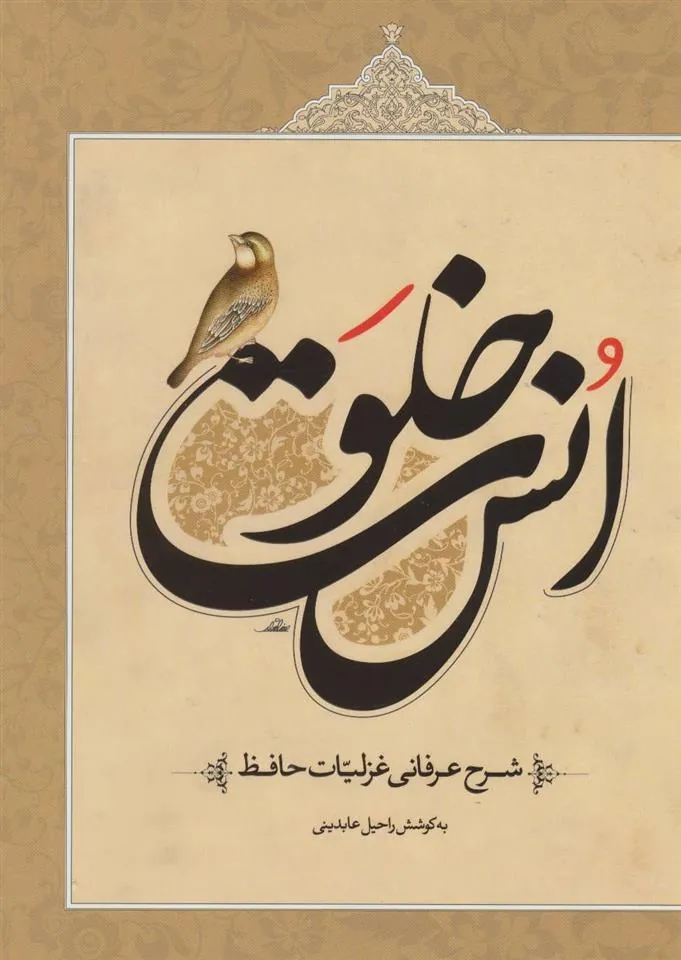 اُنس خَلوت
شرح عرفانی غزلیّات حافظ
به کوشش راحیل عابدینی